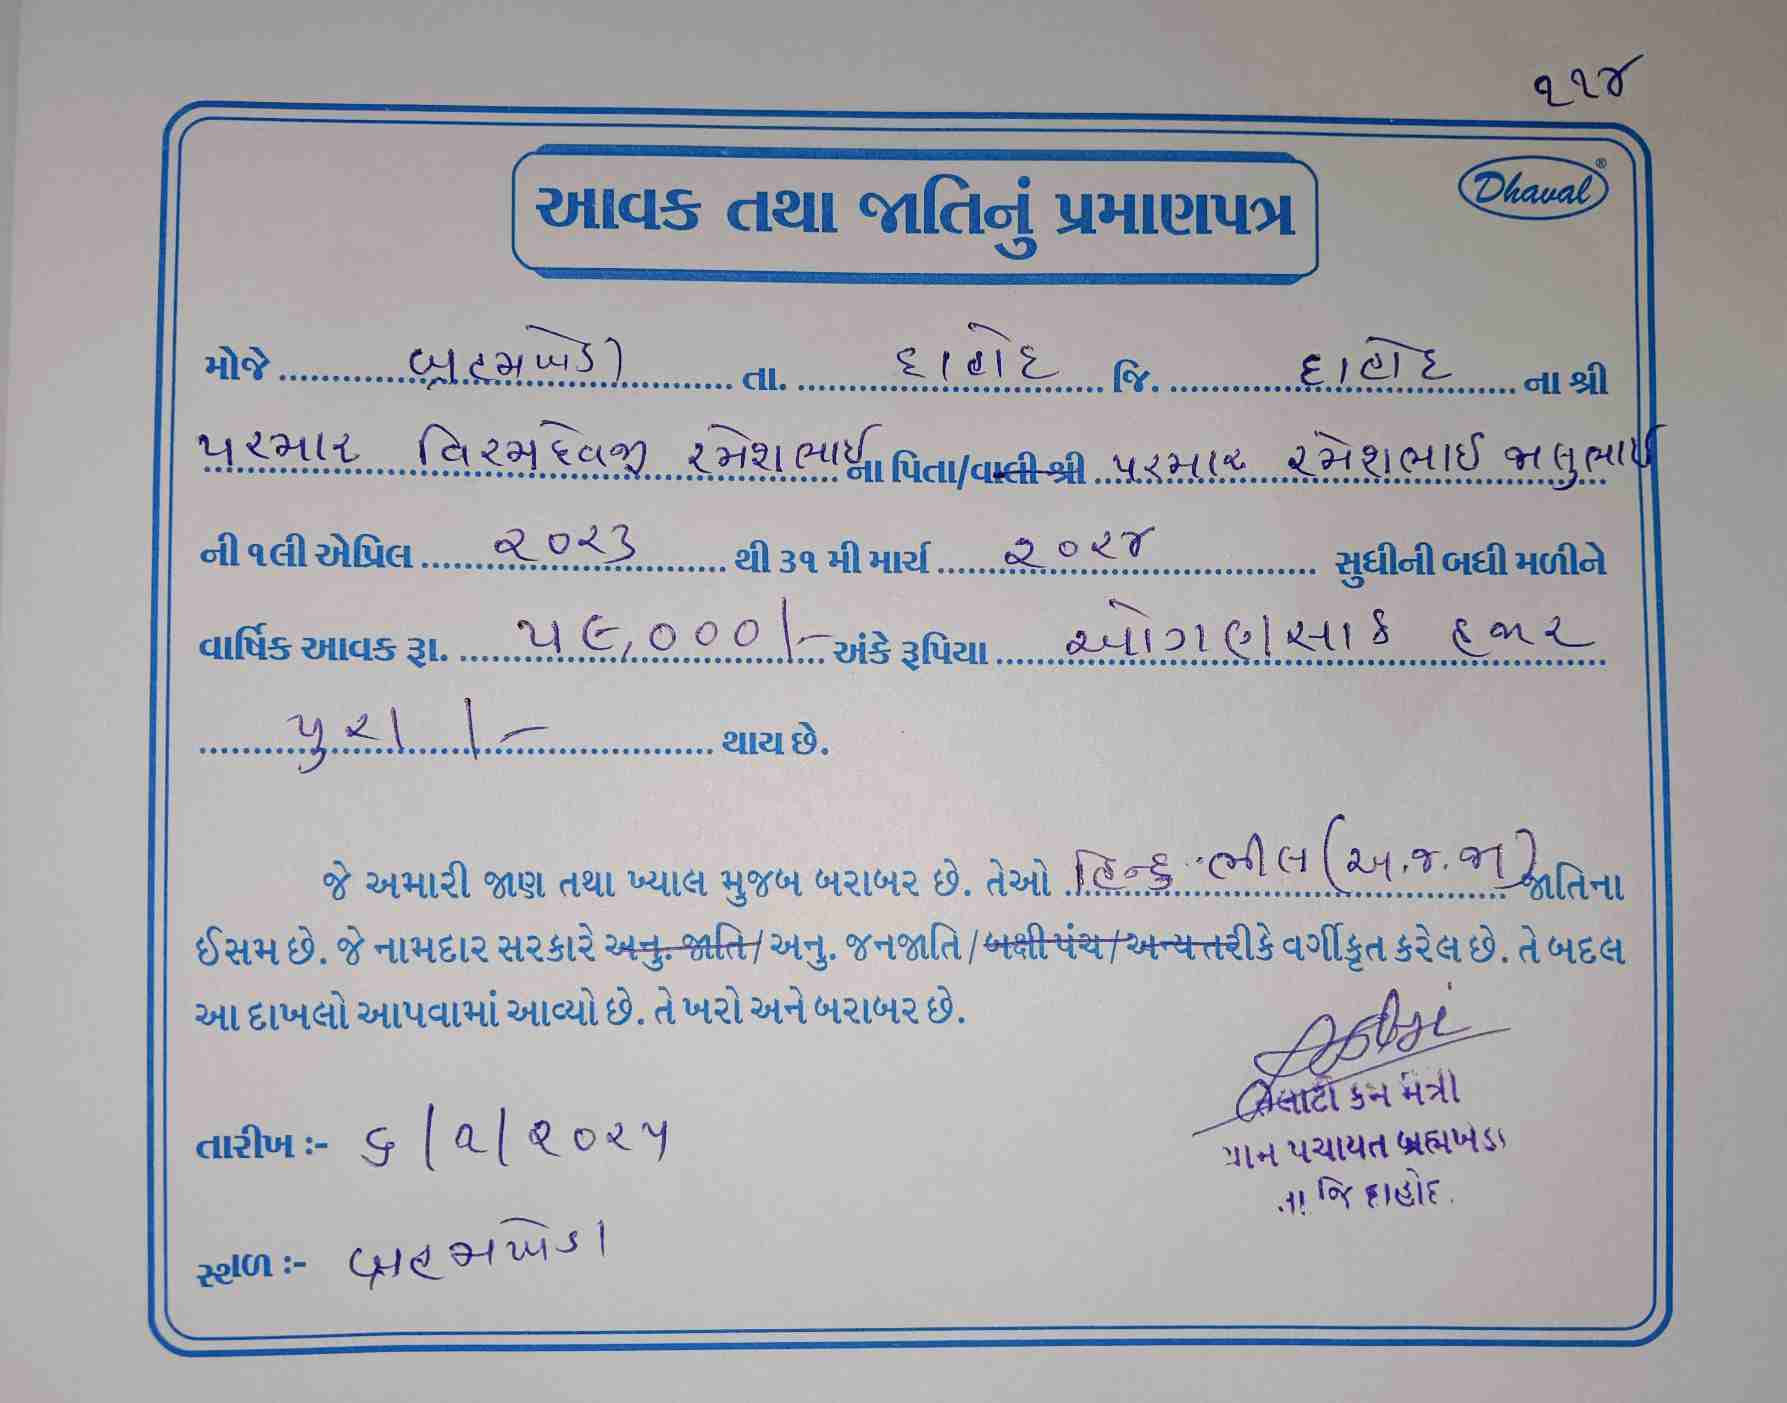 ૧૧૪
આવક તથા જાતિનું પ્રમાણપત્ર
Dhaval®
મોજે બ્રહમખેડા તા. દાહોદ જિ. દાહોદ ના શ્રી
પરમાર વિરમદેવજી રમેશભાઈ ના પિતા/વાલી શ્રી પરમાર રમેશભાઈ જાલુભાઈ
ની ૧લી એપ્રિલ ૨૦૨૩ થી ૩૧ મી માર્ચ ૨૦૨૪ સુધીની બધી મળીને
વાર્ષિક આવક રૂા. ૫૯,૦૦૦/- અંકે રૂપિયા ઓગણસાઠ હજાર
પુરા /- થાય છે.
જે અમારી જાણ તથા ખ્યાલ મુજબ બરાબર છે. તેઓ હિન્દુ ભીલ (અ.જ.જા) જાતિના
ઈસમ છે. જે નામદાર સરકારે અનુ. જાતિ/અનુ. જનજાતિ/બક્ષીપંચ/અન્ય તરીકે વર્ગીકૃત કરેલ છે. તે બદલ
આ દાખલો આપવામાં આવ્યો છે. તે ખરો અને બરાબર છે.
તલાટી કમ મંત્રી
ગ્રામ પંચાયત બ્રહ્મખેડા
તા જિ દાહોદ.
તારીખ :- ૬/૧/૨૦૨૫
સ્થળ :- બ્રહમખેડા